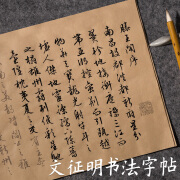 滕王閣序
南昌故郡洪都新府星分
翼軫地接衡廬襟三江而
帶五湖控蠻荊而引甌越
物華天寶龍光射牛斗之
墟人傑地靈徐孺下陳蕃
之榻雄州霧列俊彩星馳
臺隍枕夷夏之交
文征明书法字帖